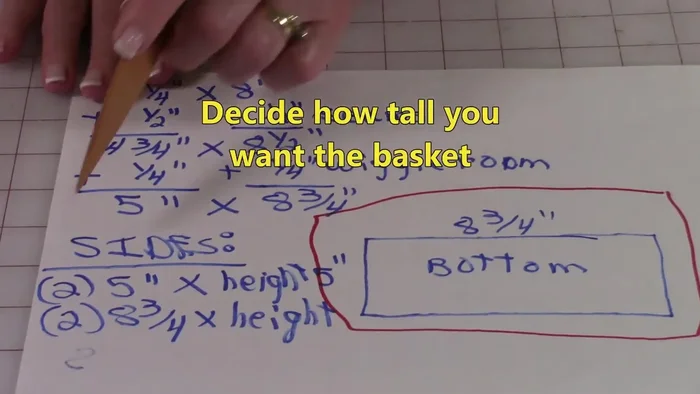 Decide how tall you
want the basket
1/4" x 8"
1/2"
4 3/4" x 8 1/2"
+ 1/4" + 1/4" wiggle room
5" x 8 3/4"
SIDES:
(2) 5" x height
(2) 8 3/4 x height
8 3/4"
5"
Bottom